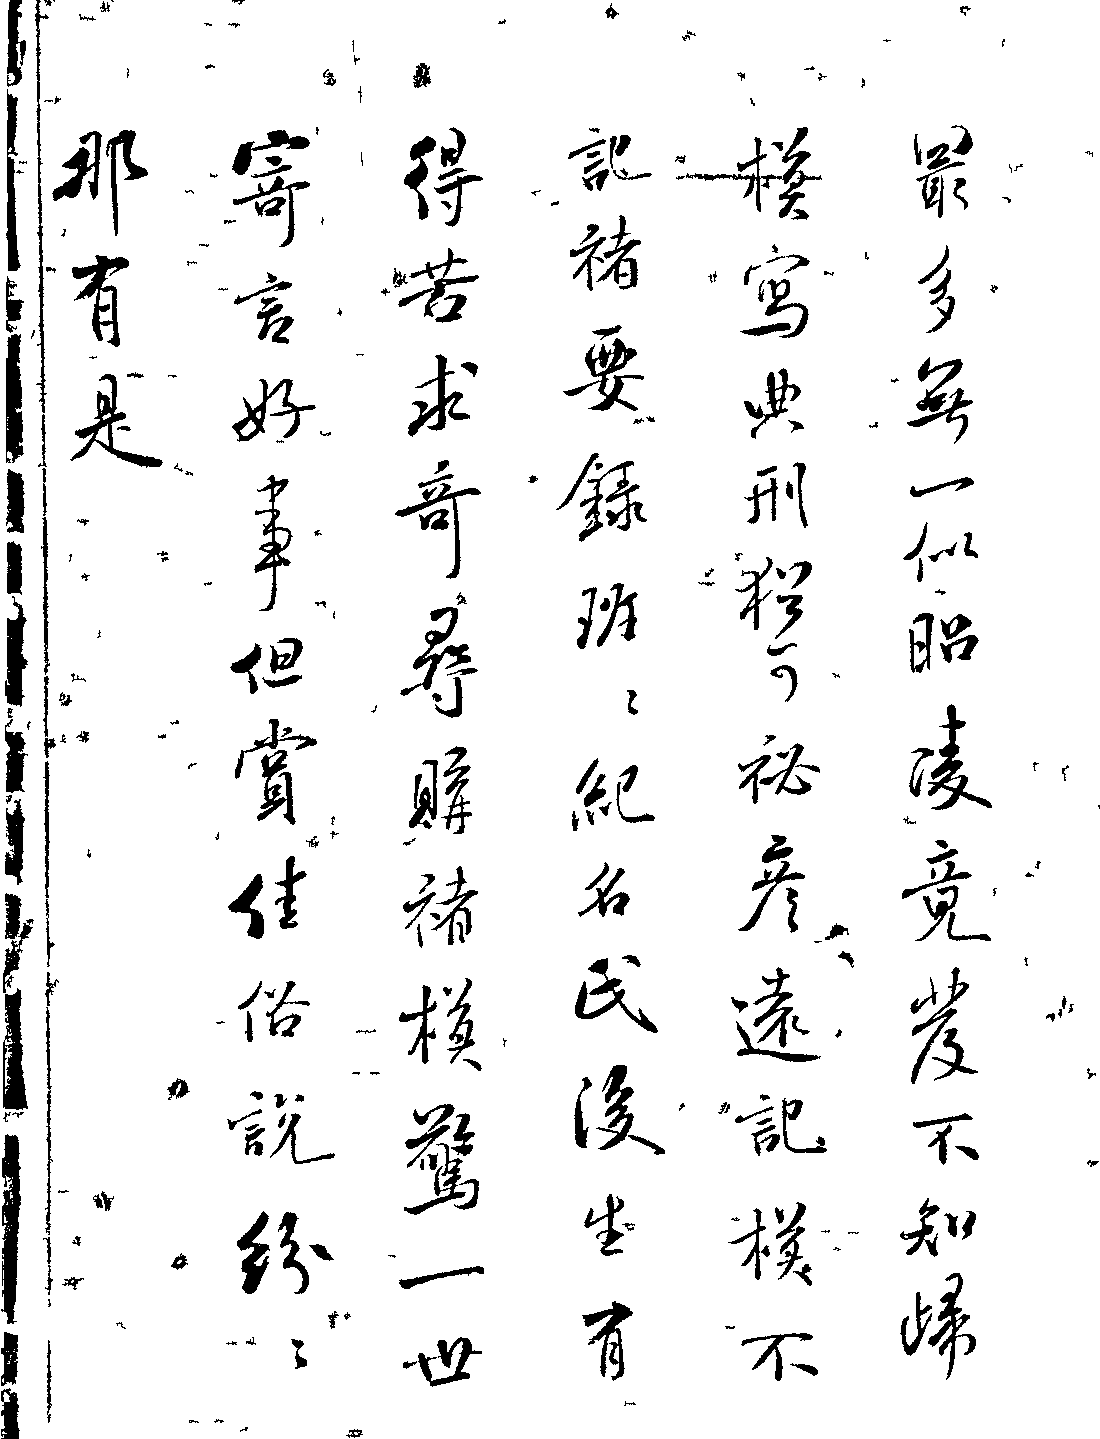 最多無一似昭凌竟發不知歸
模寫典刑猶可祕彦遠記模不
記褚要錄班〻紀名氏後生有
得苦求奇尋購褚模驚一世
寄言好事但賞佳俗說紛〻
那有是